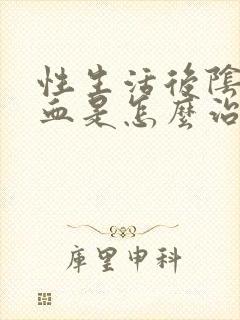 性生活後陰
血是怎麼治
庫里申科